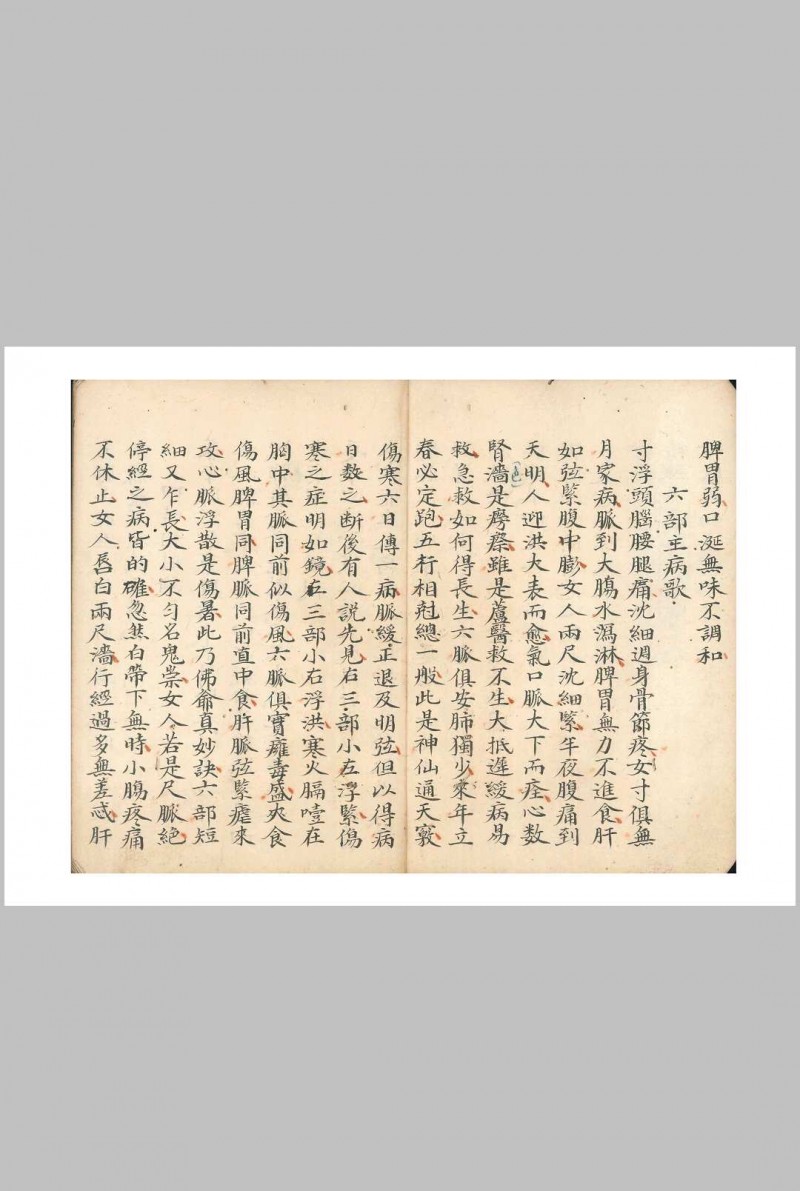 脾胃弱口涎無味不調和
六部主病歌
寸浮頭腦腰腿痛沈細週身骨節疼女寸俱無
月家病脈到大膓水瀉淋脾胃無力不進食肝
如弦緊腹中膨女人兩尺沈細緊年夜腹痛到
天明人迎洪大表而愈氣口脈大下而痊心數
腎濇是癆瘵雖是蘆醫救不生大抵遲緩病易
救急救如何得長生六脈俱安肺獨少來年立
春必定跑五行相尅總一般此是神仙通天竅
傷寒六日傳一病脈緩正退及明弦但以得病
日数之断後有人説先見右三部小左浮緊傷
寒之症明如鏡左三部小右浮洪寒火膈噎在
胸中其脈同前似傷風六脈俱實癰毒盛夾食
傷風脾胃同脾脈同前直中食肝脈弦緊瘧來
攻心脈浮散是傷暑此乃佛爺真妙訣六部短
細又乍長大小不匀名鬼祟女人若是尺脈絶
停經之病皆的確忽然白帶下無時小膓疼痛
不休止女人唇白兩尺濇行經過多無差忒肝